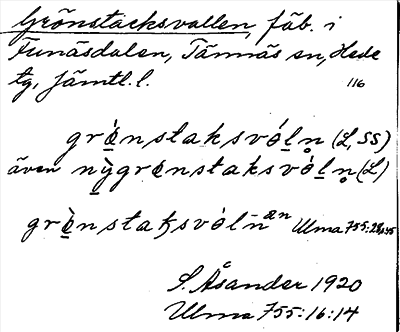 Grönstacksvallen, fäb. i
Funäsdalen, Tännäs sn, Hede
tg, Jämtl. l.
116
grè̱nstaksvóḻn̥ (L, SS)
även nỳ̱grenstaksvóḻn̥ (L)
grè̱nstaksvóln̄ än Ulma 755:
S. Åsander 1920
Ulma 755:16:14